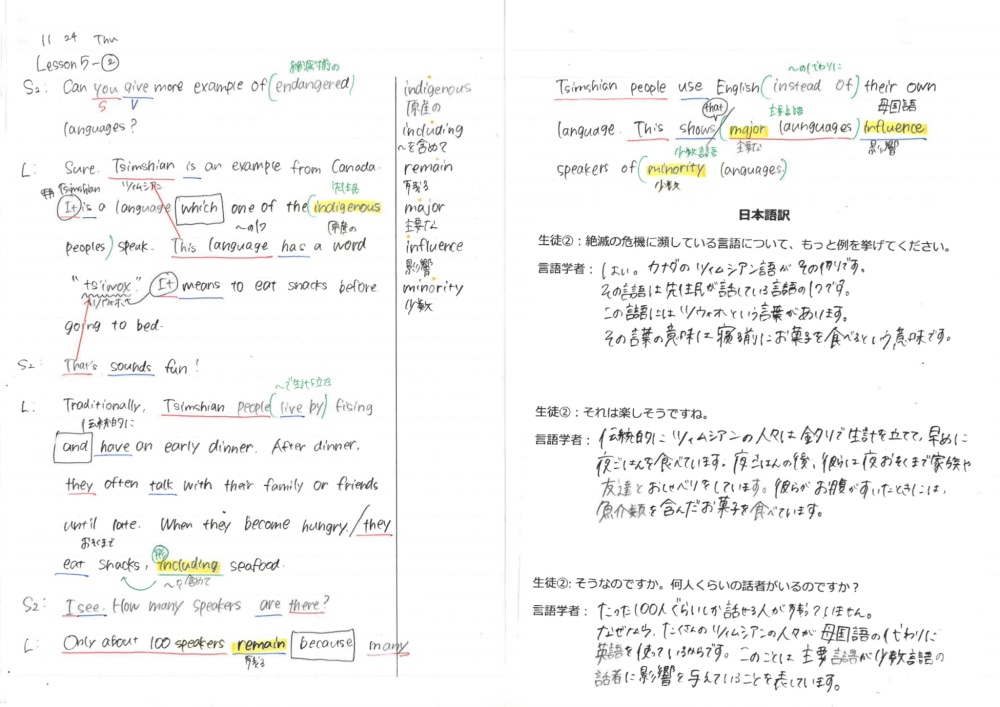 11 24 Thu
Lesson 5-②
絶滅寸前の
S₂: Can you give more example of (endangered)
S V
languages?
L: Sure. Tsimshian is an example from Canada.
Tsimshian ツィムシアン 先住民
It is a language which one of the (indigenous
〜の1つ 原産の
peoples) speak. This language has a word
"tsiwox". It means to eat snacks before
ツィウォホ
going to bed.
S₂: That's sounds fun!
〜で生計を立てる
L: Traditionally, Tsimshian people (live by) fising
伝統的に
and have an early dinner. After dinner,
they often talk with their family or friends
until late. When they become hungry, / they
おそくまで
eat snacks, including seafood.
〜を含めて
S₂: I see. How many speakers are there?
L: Only about 100 speakers remain because many
残る
indigenous
原産の
including
〜を含めて
remain
残る
major
主要な
influence
影響
minority
少数
〜の代わりに
Tsimshian people use English (instead of) their own
that 主要言語 母国語
language. This shows / (major launguages) influence
少数言語 主要な 影響
speakers of (minority languages)
少数
日本語訳
生徒②：絶滅の危機に瀕している言語について、もっと例を挙げてください。
言語学者：はい。カナダのツィムシアン語がその例です。
その言語は先住民が話している言語の1つです。
この言語にはツィウォホという言葉があります。
その言葉の意味は寝る前にお菓子を食べるという意味です。
生徒②：それは楽しそうですね。
言語学者：伝統的にツィムシアンの人々は釣りで生計を立てて、早めに
夜ごはんを食べています。夜ごはんの後、彼らは夜おそくまで家族や
友達とおしゃべりをしています。彼らがお腹がすいたときには、
魚介類を含んだお菓子を食べています。
生徒②：そうなのですか。何人くらいの話者がいるのですか？
言語学者：たった100人ぐらいしか話せる人が残っていません。
なぜなら、たくさんのツィムシアンの人々が母国語の代わりに
英語を使っているからです。このことは主要言語が少数言語の
話者に影響を与えていることを表しています。